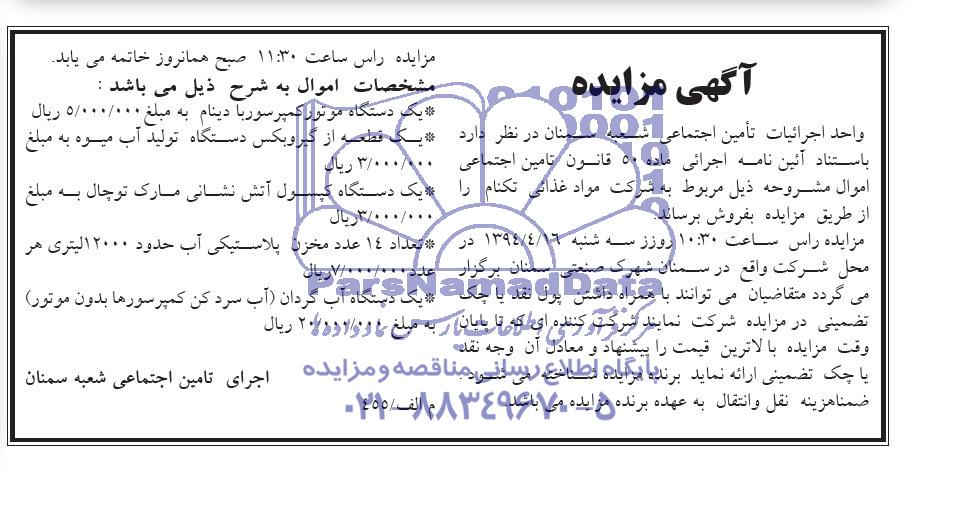 آگهی مزایده
واحد اجرائیات تأمین اجتماعی شعبه سمنان در نظر دارد
باستناد آئین نامه اجرائی ماده ۵۰ قانون تامین اجتماعی
اموال مشروحه ذیل مربوط به شرکت مواد غذائی تکنام را
از طریق مزایده بفروش برساند.
مزایده راس ساعت ۱۰:۳۰ روزز سه شنبه ۱۳۹۴/۴/۱۶ در
محل شرکت واقع در سمنان شهرک صنعتی سمنان برگزار
می گردد متقاضیان می توانند با همراه داشتن پول نقد یا چک
تضمینی در مزایده شرکت نمایند شرکت کننده ای که تا پایان
وقت مزایده با لاترین قیمت را پیشنهاد و معادل آن وجه نقد
یا چک تضمینی ارائه نماید برنده مزایده شناخته می شود.
ضمناهزینه نقل وانتقال به عهده برنده مزایده می باشد.
مزایده راس ساعت ۱۱:۳۰ صبح همانروز خاتمه می یابد.
مشخصات اموال به شرح ذیل می باشد :
*یک دستگاه موتورکمپرسوربا دینام به مبلغ ۵/۰۰۰/۰۰۰ ریال
*یک قطعه از گیروبکس دستگاه تولید آب میوه به مبلغ
۳/۰۰۰/۰۰۰ ریال
*یک دستگاه کپسول آتش نشانی مارک توچال به مبلغ
۳/۰۰۰/۰۰۰ریال
*تعداد ۱۴ عدد مخزن پلاستیکی آب حدود ۱۲۰۰۰لیتری هر
عدد۷/۰۰۰/۰۰۰ریال
*یک دستگاه آب گردان (آب سرد کن کمپرسورها بدون موتور)
به مبلغ ۲۰/۰۰۰/۰۰۰ ریال
اجرای تامین اجتماعی شعبه سمنان
م الف/۴۵۵
ParsNamadData
پایگاه اطلاع رسانی مناقصه و مزایده
۰۲۱-۸۸۳۴۹۶۷۰-۵